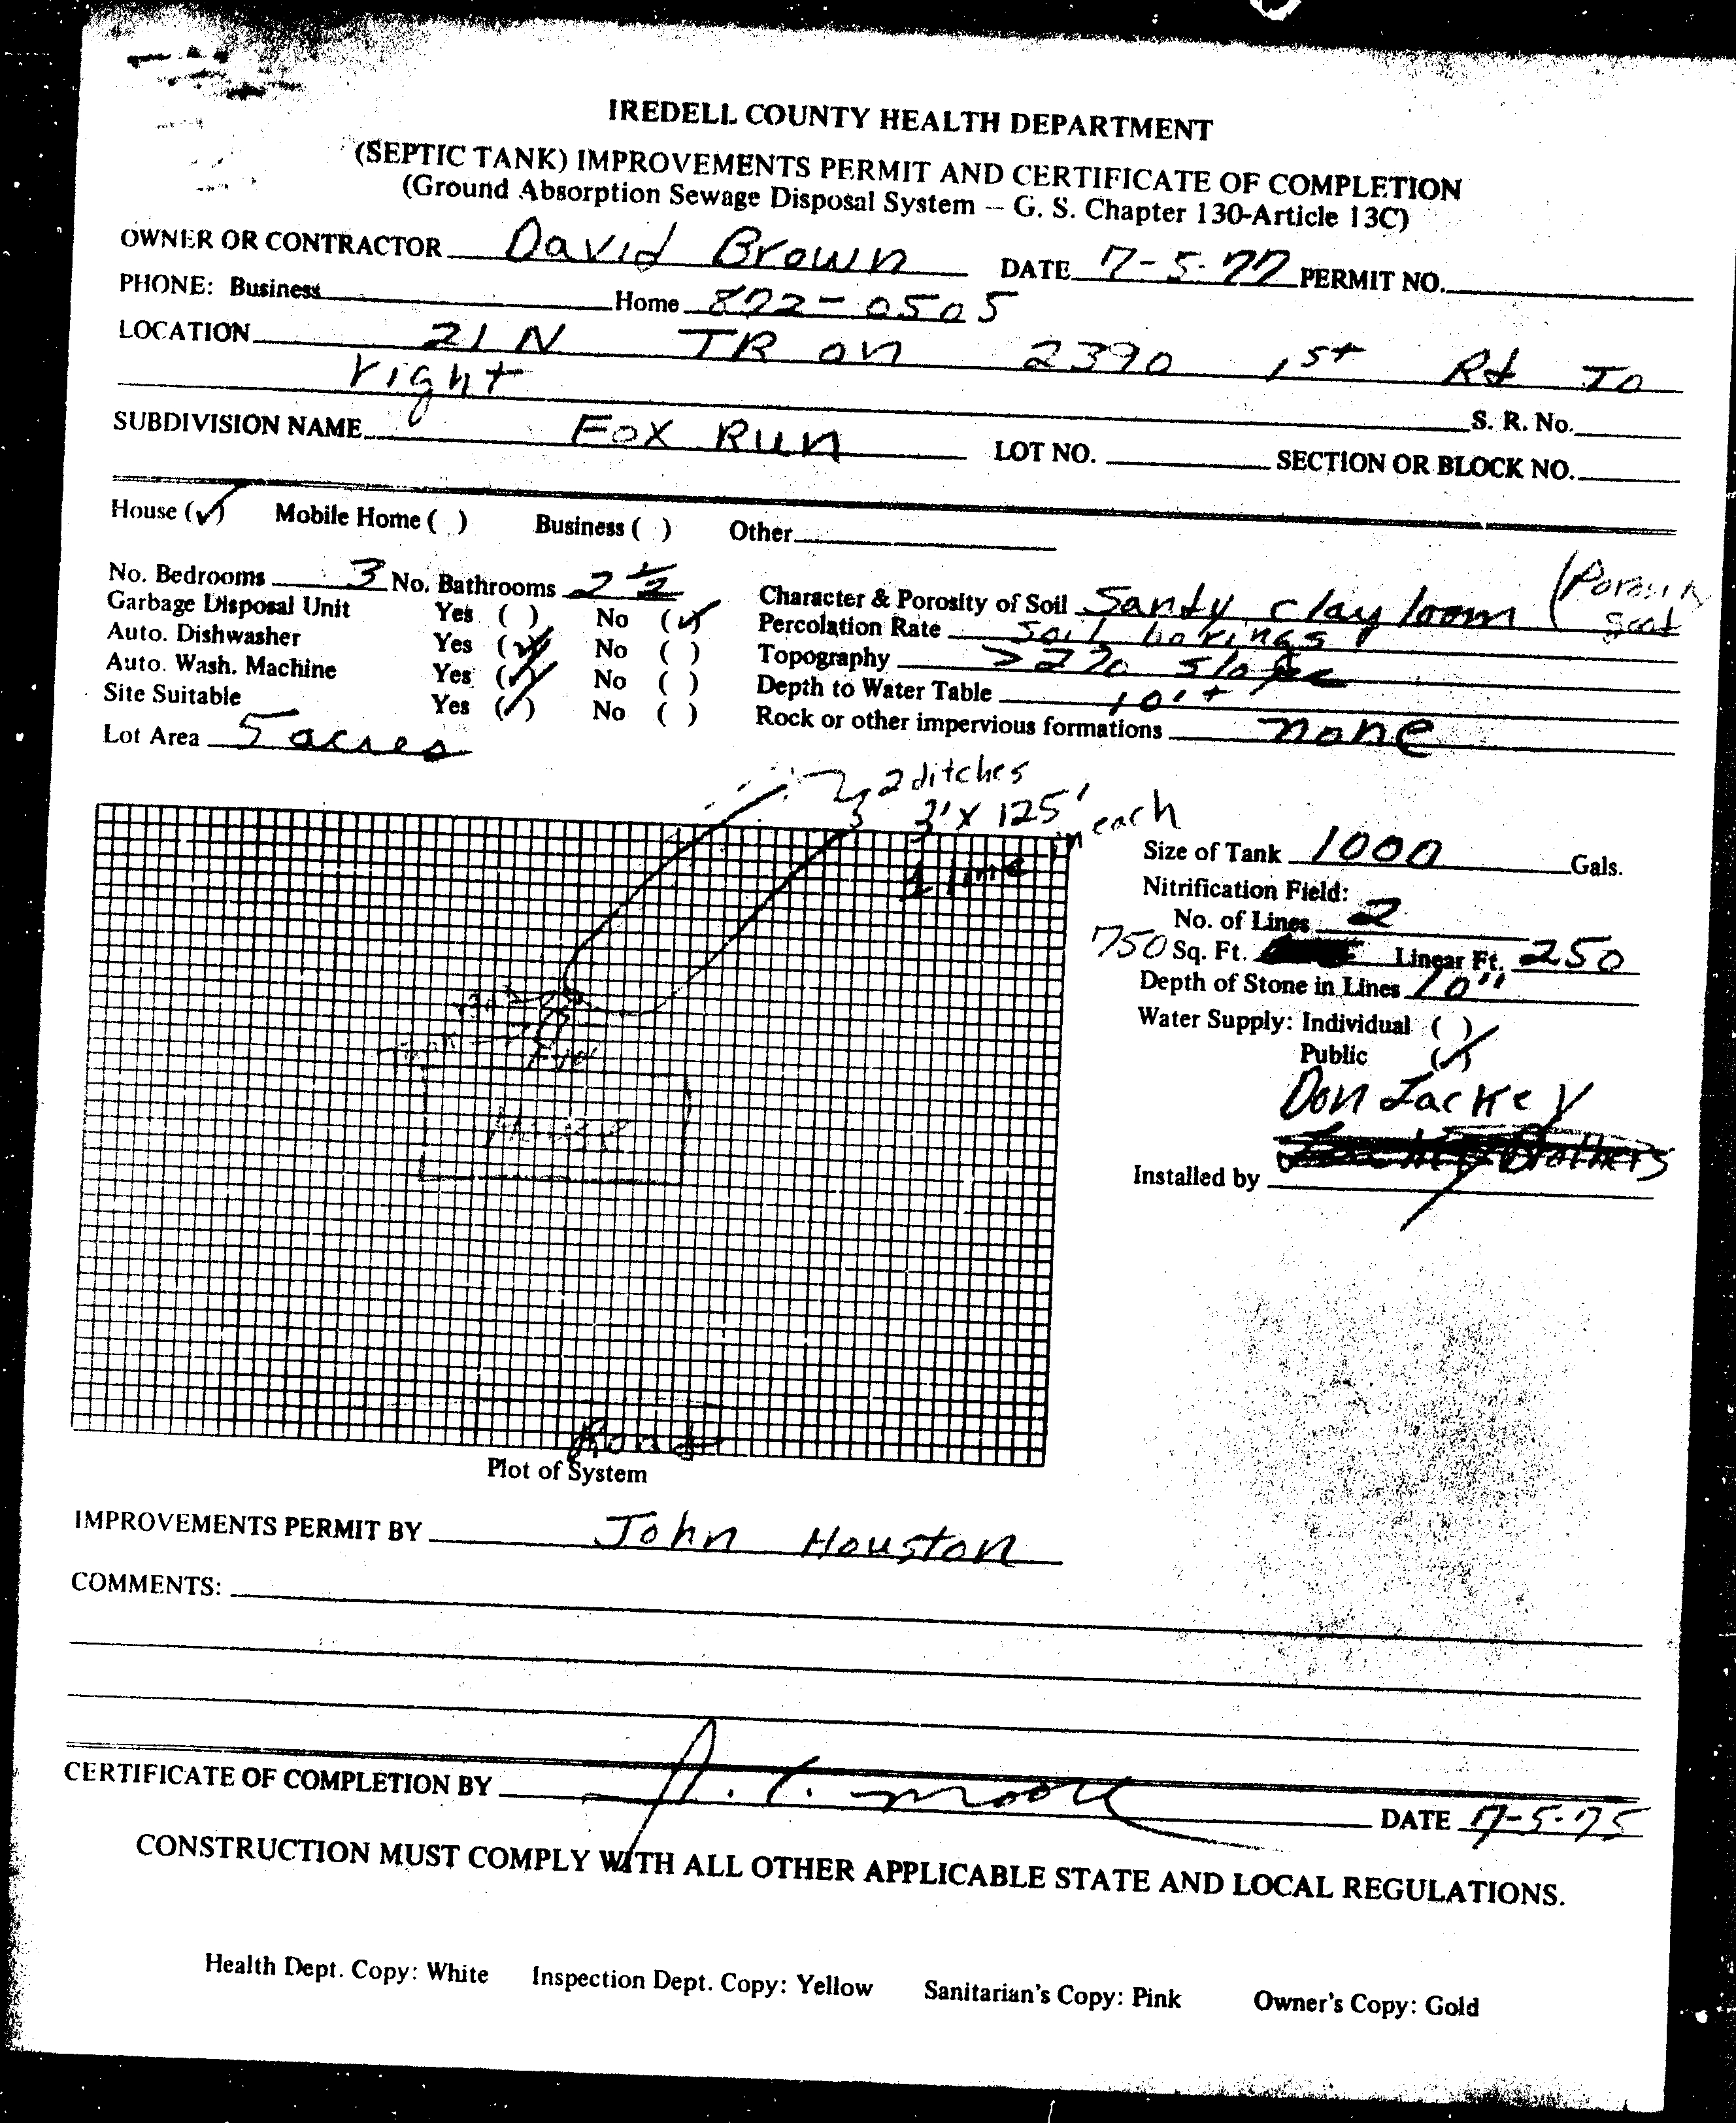 IREDELL COUNTY HEALTH DEPARTMENT
(SEPTIC TANK) IMPROVEMENTS PERMIT AND CERTIFICATE OF COMPLETION
(Ground Absorption Sewage Disposal System — G. S. Chapter 130-Article 13C)
OWNER OR CONTRACTOR David Brown DATE 7-5-77 PERMIT NO.
PHONE: Business Home 872-0505
LOCATION 21 N TR on 2390 1st Rd To
right S. R. No.
SUBDIVISION NAME Fox Run LOT NO. SECTION OR BLOCK NO.
House (✓) Mobile Home ( ) Business ( ) Other
No. Bedrooms 3 No. Bathrooms 2 1/2 Character & Porosity of Soil Sandy clay loom (Porosity good
Garbage Disposal Unit Yes ( ) No (✓) Percolation Rate soil borings
Auto. Dishwasher Yes (✓) No ( ) Topography >2% slope
Auto. Wash. Machine Yes (✓) No ( ) Depth to Water Table 10'+
Site Suitable Yes (✓) No ( ) Rock or other impervious formations none
Lot Area 5 acres
2 ditches
3' X 125' each
Size of Tank 1000 Gals.
Nitrification Field:
No. of Lines 2
750 Sq. Ft. Linear Ft. 250
Depth of Stone in Lines 10"
Water Supply: Individual ( )
Public (✓)
Don Lackey
Installed by Brothers
Road
Plot of System
IMPROVEMENTS PERMIT BY John Houston
COMMENTS:
CERTIFICATE OF COMPLETION BY Moore DATE 7-5-75
CONSTRUCTION MUST COMPLY WITH ALL OTHER APPLICABLE STATE AND LOCAL REGULATIONS.
Health Dept. Copy: White Inspection Dept. Copy: Yellow Sanitarian's Copy: Pink Owner's Copy: Gold